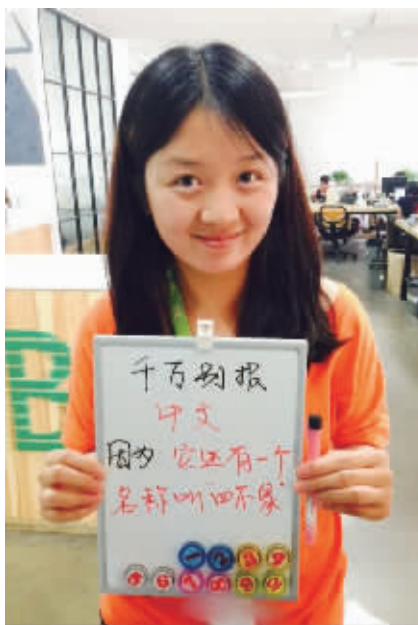 千万别报
中文
因为 它还有一个
名称叫"四不象"